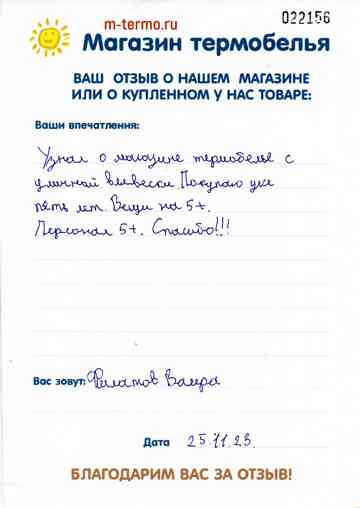 m-termo.ru
022156
Магазин термобелья
ВАШ ОТЗЫВ О НАШЕМ МАГАЗИНЕ
ИЛИ О КУПЛЕННОМ У НАС ТОВАРЕ:
Ваши впечатления:
Узнал о магазине термобелье с
уличной вывески. Покупаю уже
пять лет. Вещи на 5+.
Персонал 5+. Спасибо!!!
Вас зовут: Филатов
Дата 25.11.23.
БЛАГОДАРИМ ВАС ЗА ОТЗЫВ!